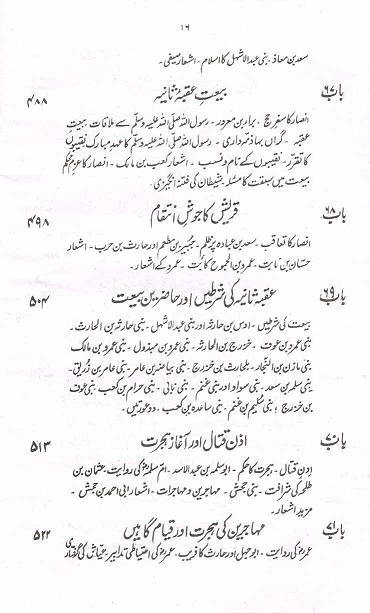 ۱۶
سعد بن معاذ۔ بنی عبد الاشہل کا اسلام۔ اشعار صیفی۔
باب ۶۷ بیعتِ عقبۂ ثانیہ ۴۸۸
انصار کا سفرِ حج۔ براء بن معرور۔ رسول اللہ صلی اللہ علیہ وسلم سے ملاقات بیعتِ
عقبہ۔ گراں بہا ذمہ داری۔ رسول اللہ صلی اللہ علیہ وسلم کا عہد مبارک نقیبوں
کا تقرر۔ نقیبوں کے نام و نسب۔ اشعار کعب بن مالک۔ انصار کا عزم محکم
بیعت میں سبقت کا مسئلہ شیطان کی فتنہ انگیزی۔
باب ۶۸ قریش کا جوشِ انتقام ۴۹۸
انصار کا تعاقب۔ سعد بن عبادہ پر ظلم۔ جبیر بن مطعم اور حارث بن حرب۔ اشعار
حسان بن ثابت۔ عمرو بن الجموح کا بُت۔ عمرو کے اشعار۔
باب ۶۹ عقبۂ ثانیہ کی شرطیں اور حاضرین بیعت ۵۰۴
بیعت کی شرطیں۔ اوس بن حارثہ اور بنی عبد الاشہل۔ بنی حارثہ بن الحارث۔
بنی عمرو بن عوف۔ خزرج بن الحارثہ۔ بنی عمرو بن مبذول۔ بنی عمرو بن مالک
بنی مازن بن النجار۔ بلحارث بن خزرج۔ بنی بیاضہ بن عامر۔ بنی عامر بن زُریق۔
بنی سلمہ بن سعد۔ بنی سواد اور بنی غنم۔ بنی نابی۔ بنی حرام بن کعب۔ بنی عوف
بن خزرج۔ بنی سُلیم بن غنم۔ بنی ساعدہ بن کعب۔ دو عورتیں۔
باب ۷۰ اذنِ قتال اور آغازِ ہجرت ۵۱۳
اذنِ قتال۔ ہجرت کا حکم۔ ابو سلمہ بن عبد الاسد۔ ام سلمہ کی روایت عثمان بن
طلحہ کی شرافت۔ بنی جحش۔ مہاجرین و مہاجرات۔ اشعار ابی احمد بن جحش۔
مزید اشعار۔
باب ۷۱ مہاجرین کی ہجرت اور قیام گاہیں ۵۲۲
عمر کی روایت۔ ابو جہل اور حارث کا فریب۔ عمر کی احتیاطی تدابیر عیاش کی گرفتاری